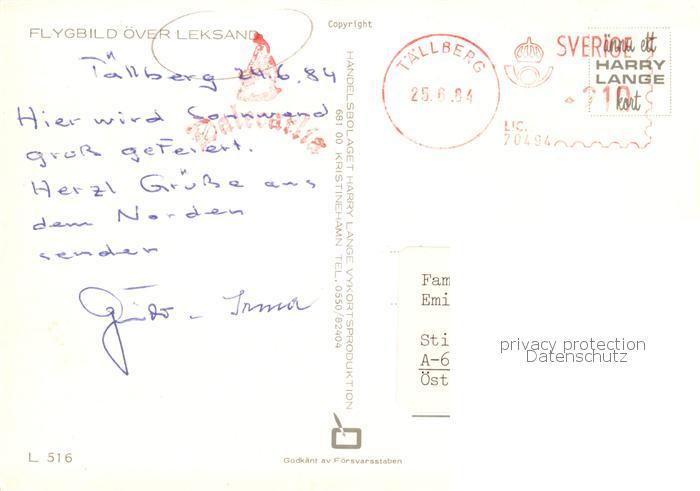 FLYGBILD ÖVER LEKSAND
Copyright
Tällberg 24.6.84
Hier wird Sonnwend
groß gefeiert.
Herzl Grüße aus
dem Norden
senden
Guido - Irma
HANDELSBOLAGET HARRY LANGE VYKORTSPRODUKTION
681 00 KRISTINEHAMN TEL. 0550/82404
TÄLLBERG
25.6.84
SVERIGE
210
LIC.
70494
ännu ett
HARRY
LANGE
kort
Fam
Emi
Sti
A-6
Öst
privacy protection
Datenschutz
L 516
Godkänt av Försvarsstaben